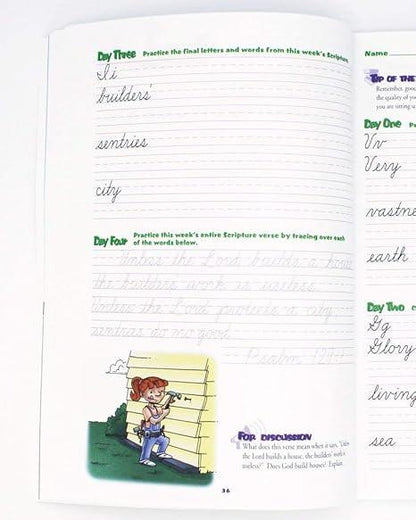 Day Three Practice the final letters and words from this week's Scripture.
Ii
builders'
sentries
city
Day Four Practice this week's entire Scripture verse by tracing over each
of the words below.
Unless the Lord builds a house
the builders work is useless.
Unless the Lord protects a city
sentries do no good.
Psalm 127:1
FOR DISCUSSION
What does this verse mean when it says, "Unless
the Lord builds a house, the builders' work is
useless?" Does God build houses? Explain.
36
Name
TIP OF THE
Remember, good
the quality of you
you are sitting u
Day One
Vv
Very
vastne
earth
Day Two
Gg
Glory
living
sea